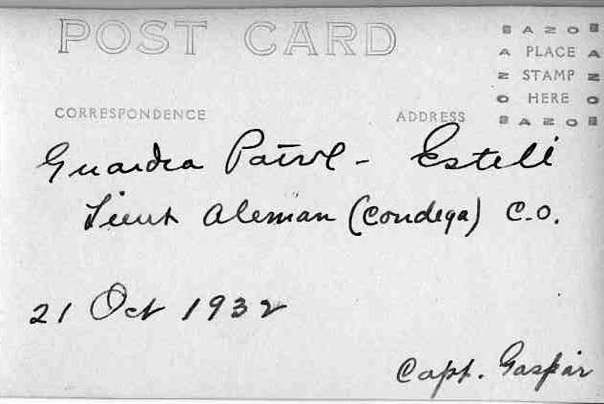 POST CARD
AZO
PLACE
STAMP
HERE
AZO
CORRESPONDENCE
ADDRESS
Guardia Patrol - Esteli
Lieut Aleman (Condega) C.O.
21 Oct 1932
Capt. Gaspar